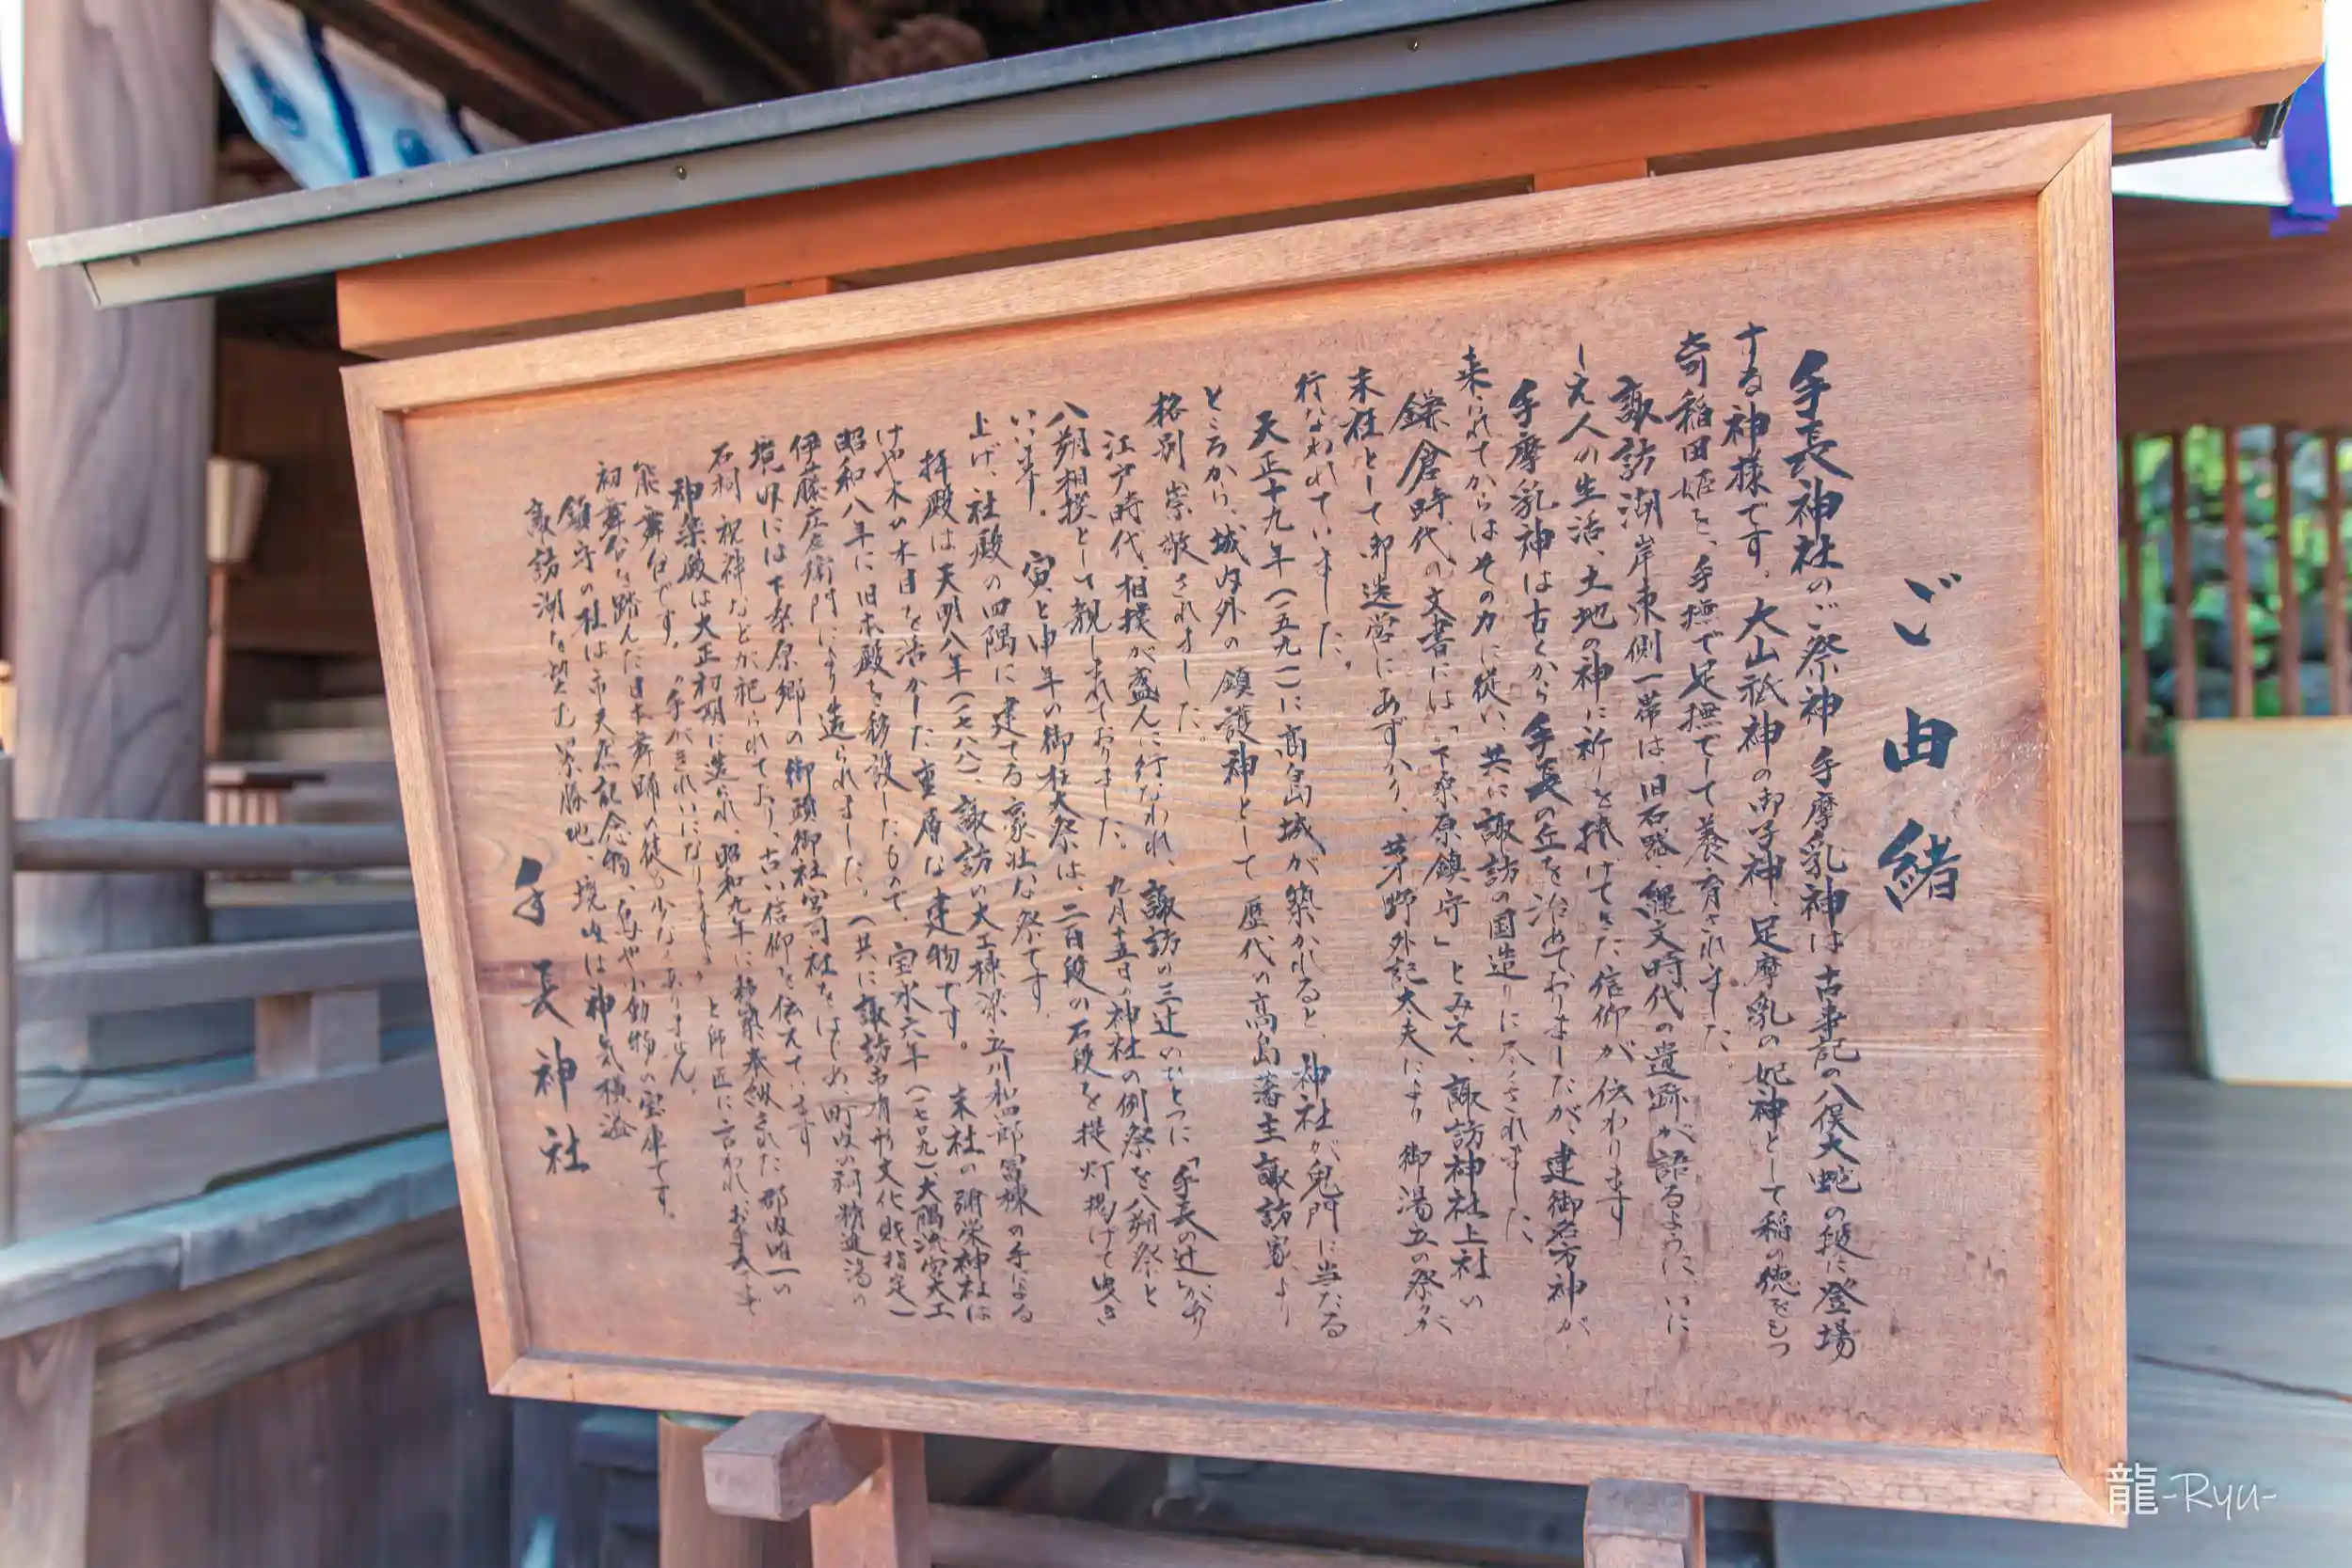 ご由緒
手長神社のご祭神 手摩乳神は古事記の八俣大蛇の段に登場
する神様です。大山祇神の御子神、足摩乳の妃神として稲の徳をもつ
奇稲田姫を、手撫で足撫でして養育されました。
諏訪湖岸東側一帯は旧石器、縄文時代の遺跡が語るように、いに
しえ人の生活、土地の神に祈りを捧げてきた信仰が伝わります
手摩乳神は古くから手長の丘を治めておりましたが、建御名方神が
来られてからはその力に従い、共に諏訪の国造りに尽くされました
鎌倉時代の文書には「下桑原鎮守」とみえ、諏訪神社上社の
末社として御造営にあずかり、茅野外記太夫により御湯立の祭が
行なわれていました。
天正十九年(一五九一)に高島城が築かれると、神社が鬼門に当たる
ところから、城内外の鎮護神として歴代の高島藩主諏訪家より
格別崇敬されました。
江戸時代、相撲が盛んに行なわれ、諏訪の三辻のひとつに「手長の辻」があり
八朔相撲として親しまれておりました。九月十五日の神社の例祭を八朔祭と
いいます。寅と申年の御柱大祭は、二百段の石段を提灯掲げて曳き
上げ、社殿の四隅に建てる豪壮な祭です。
拝殿は天明八年(一七八八)、諏訪の大工棟梁立川和四郎冨棟の手による
けや木の木目を活かした重厚な建物です。末社の弥栄神社は
昭和八年に旧本殿を移設したもので、宝永六年(一七〇九)、大隅流宮大工
伊藤庄左衛門により造られました。(共に諏訪市有形文化財指定)
境内には下桑原郷の御頭御社宮司社をはじめ、町内の祠、精進湯の
石祠 祝神などが祀られており、古い信仰を伝えています
神楽殿は大正初期に造られ、昭和九年に移築奉納された郡内唯一の
能舞台です。〝手がきれいになりますよ〟と師匠に言われ、お手長さま
初舞台を踏んだ日本舞踊の徒も少なくありません。
鎮守の杜は市天然記念物、鳥や小動物の宝庫です。
諏訪湖を望む景勝地、境内は神気横溢
手長神社
龍-Ryu-